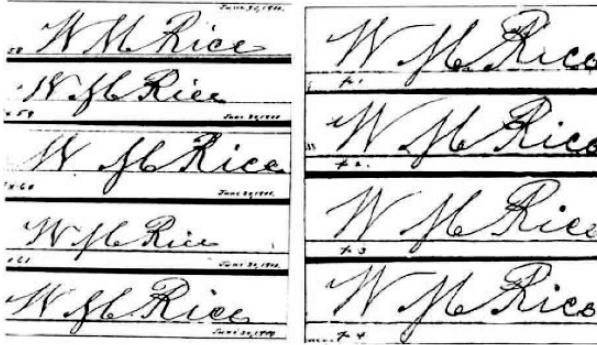 June 30, 1900.
W M Rice
58
W M Rice
x 59
June 30, 1900
W M Rice
x 60
June 30, 1900.
W M Rice
x 61
June 30, 1900.
W M Rice
June 30, 1900
W M Rice
p 1.
W M Rice
p 2.
W M Rice
p 3
W M Rice
p 4